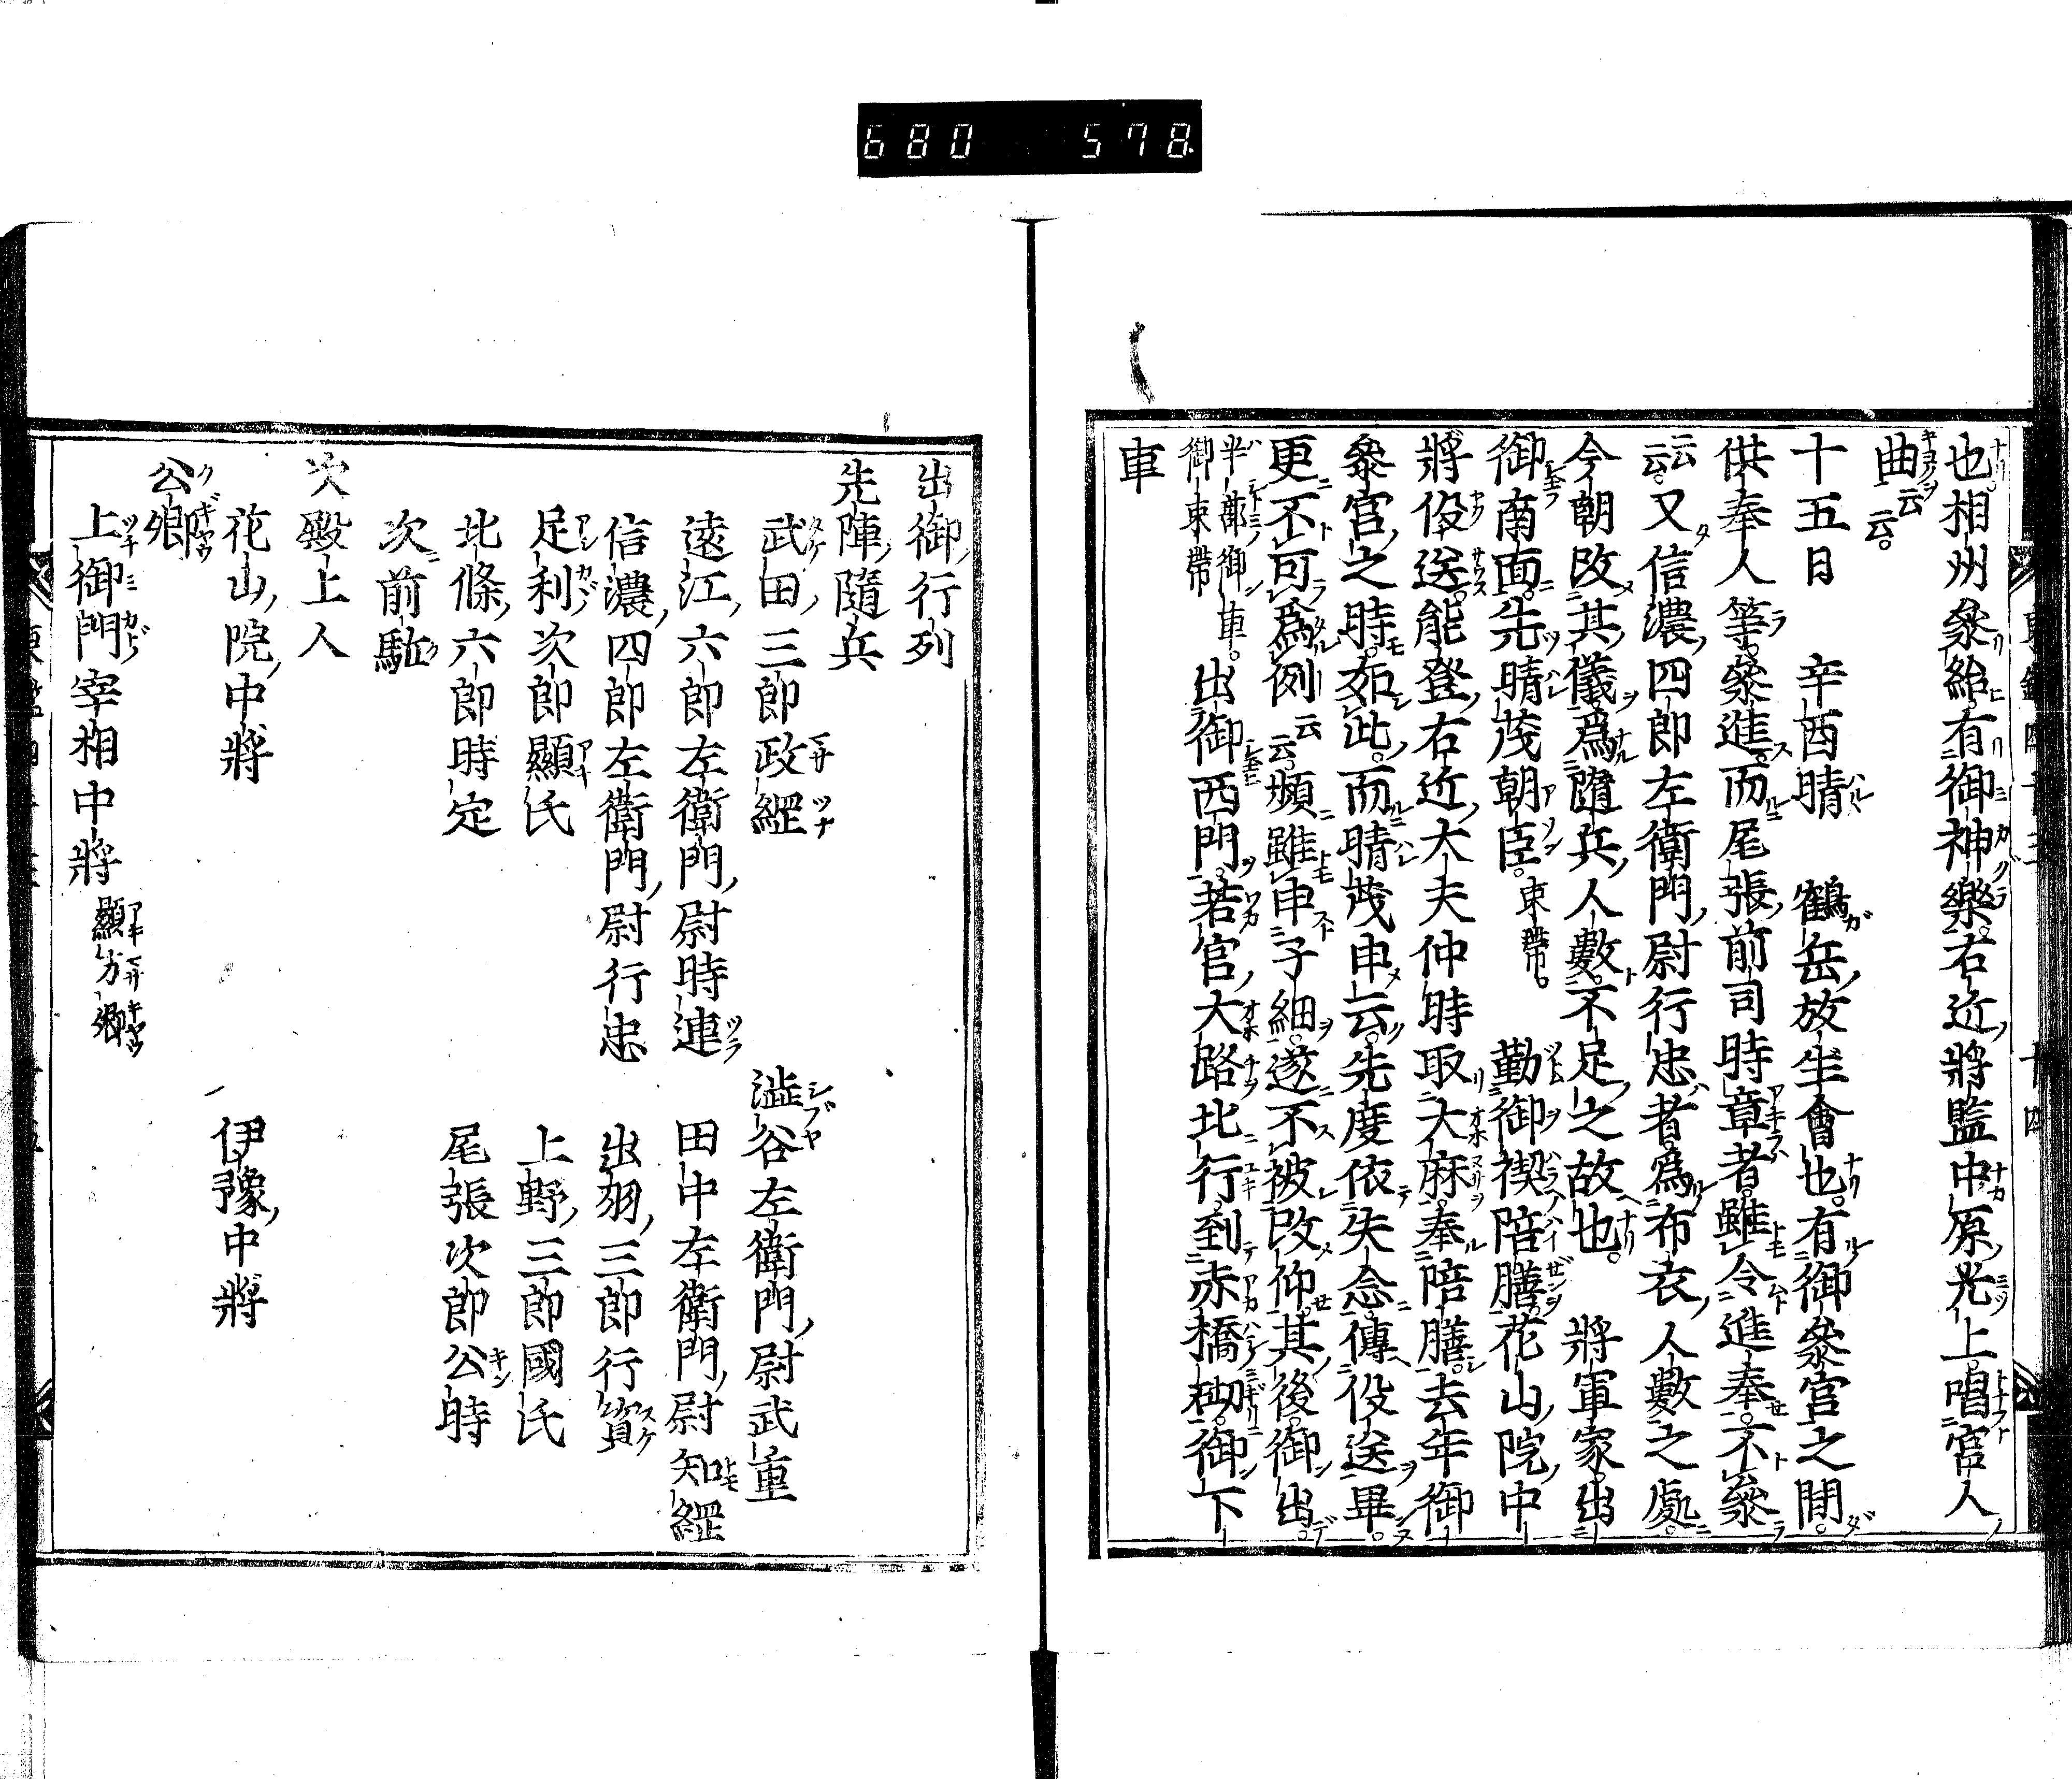 680 578
也相州參給有御神樂右近將監中原光上唱宮人
曲云云
十五日 辛酉晴 鶴岳放生會也有御參宮之間
供奉人等參進而尾張前司時章者雖令進奉不參
云云又信濃四郎左衛門尉行忠者爲布衣人數之處
今朝改其儀爲隨兵人數不足之故也 將軍家出
御南面先晴茂朝臣束帶 勤御禊陪膳花山院中
將役送能登右近大夫仲時取大麻奉陪膳去年御
參宮之時如此而晴茂申云先度依失念傳役送畢
更不可爲例云云頻雖申子細遂不被改仰其後御出
御束帶半蔀御車 出御西門若宮大路北行到赤橋砌御下
車
出御行列
先陣隨兵
武田三郎政經 澁谷左衛門尉武重
遠江六郎左衛門尉時連 田中左衛門尉知經
信濃四郎左衛門尉行忠 出羽三郎行資
足利次郎顯氏 上野三郎國氏
北條六郎時定 尾張次郎公時
次前駈
次殿上人
花山院中將 伊豫中將
公卿
土御門宰相中將顯方卿